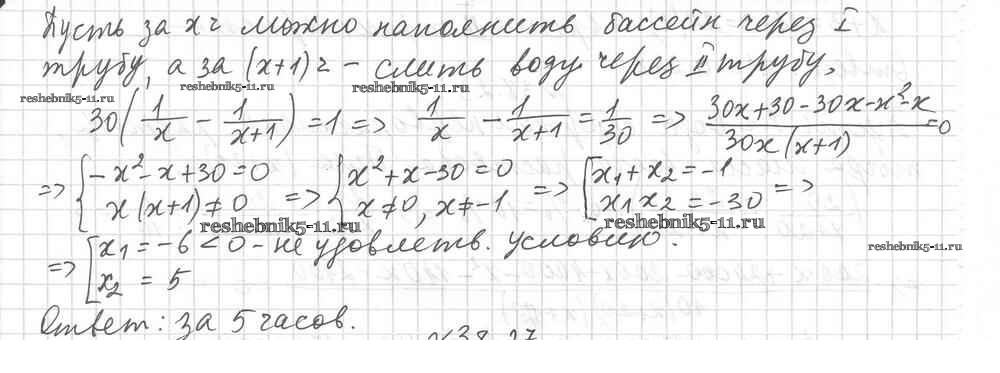 Пусть за x ч можно наполнить бассейн через I
трубу, а за (x+1) ч – слить воду через II трубу,
reshebnik5-11.ru reshebnik5-11.ru reshebnik5-11.ru
30(1/x - 1/(x+1)) = 1 => 1/x - 1/(x+1) = 1/30 => (30x+30-30x-x²-x)/(30x(x+1)) = 0
=> { -x²-x+30=0 => { x²+x-30=0 => [ x₁+x₂=-1 =>
x(x+1)≠0 x≠0, x≠-1 x₁x₂=-30
reshebnik5-11.ru reshebnik5-11.ru
=> [ x₁=-6<0 - не удовлетв. условию.
reshebnik5-11.ru
x₂=5
reshebnik5-11.ru
Ответ: за 5 часов.